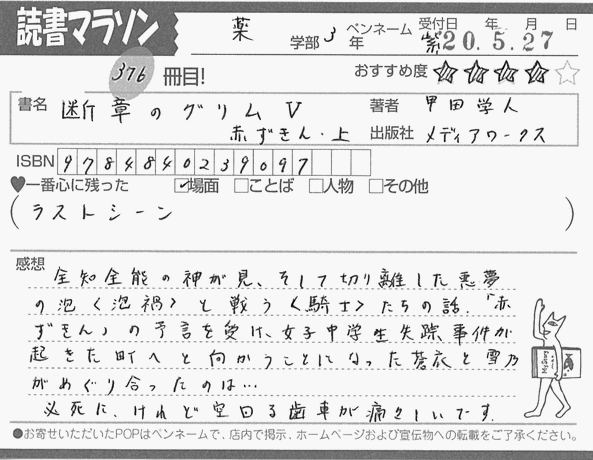 読書マラソン
薬 学部 3 年 ペンネーム 紫 受付日 年 月 日
20.5.27
376 冊目! おすすめ度 ★★★★☆
書名 断章のグリム Ⅴ 著者 甲田学人
赤ずきん・上 出版社 メディアワークス
ISBN 9784840239097
♥一番心に残った ☑場面 □ことば □人物 □その他
(ラストシーン)
感想
全知全能の神が見、そして切り離した悪夢
の泡〈泡禍〉と戦う〈騎士〉たちの話。「赤
ずきん」の予言を受け、女子中学生失踪事件が
起きた町へと向かうことになった蒼衣と雪乃
がめぐり合ったのは…
必死に、けれど空回る歯車が痛々しいです。
●お寄せいただいたPOPはペンネームで、店内で掲示、ホームページおよび宣伝物への転載をご了承ください。